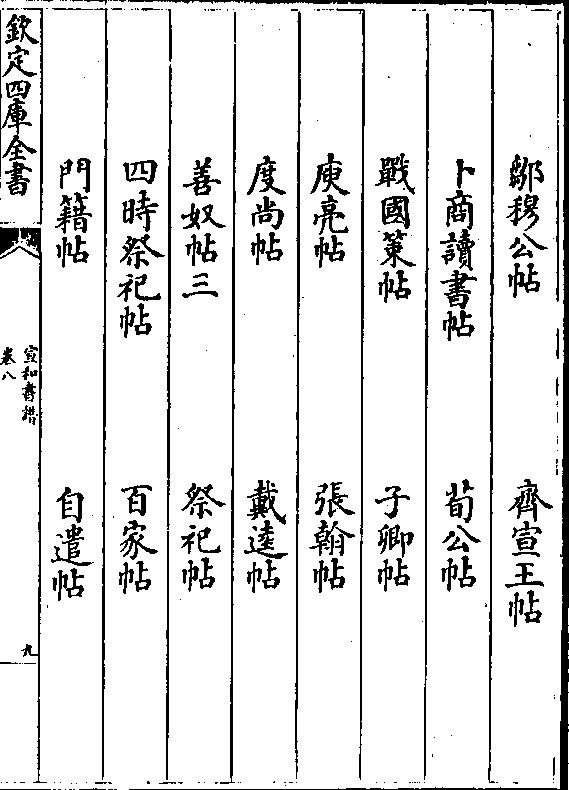 鄒穆公帖　齊宣王帖
卜商讀書帖　荀公帖
戰國策帖　子卿帖
庾亮帖　張翰帖
度尚帖　戴逵帖
善奴帖三　祭祀帖
四時祭祀帖　百家帖
門籍帖　自遣帖
欽定四庫全書
宣和書譜
卷八
九